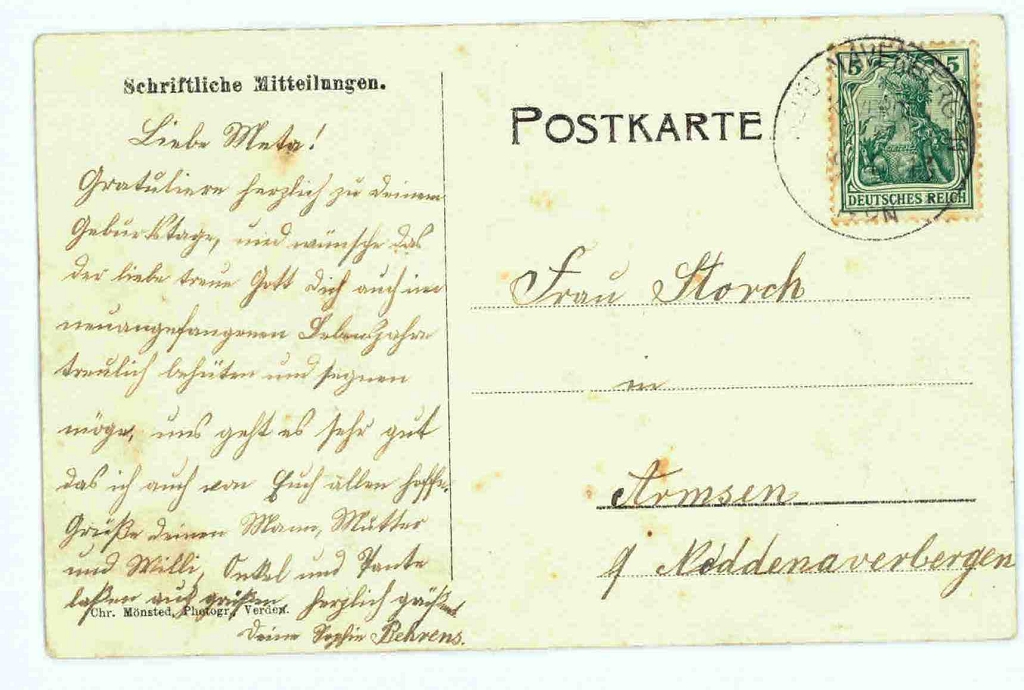 Schriftliche Mitteilungen.
Liebe Meta!
Gratuliere herzlich zu deinem
Geburtstage, und wünsche das
der liebe treue Gott dich auch im
neuangefangenen Lebensjahre
treulich behüten und segnen
möge, uns geht es sehr gut
das ich auch von Euch allen hoffe.
Grüße deinen Mann, Mutter
und Willi, Onkel und Tante
laßen auch grüßen herzlich grüßt
Chr. Mönsted, Photogr., Verden.
Deine Sophie Behrens.
POSTKARTE
5 5
DEUTSCHES REICH
Frau Storch
in
Armsen
Neddenaverbergen